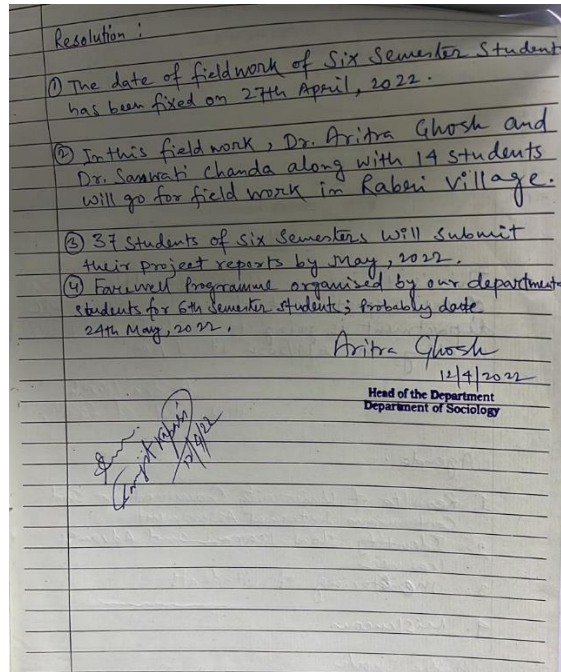 Resolution :
① The date of fieldwork of Six Semester Student
has been fixed on 27th April, 2022.
② In this field work, Dr. Aritra Ghosh and
Dr. Sanwati Chanda along with 14 students
will go for field work in Raberi village.
③ 37 Students of Six Semesters will submit
their project reports by May, 2022.
④ Farewell Programme organised by our department
students for 6th Semester students; Probably date
24th May, 2022.
Aritra Ghosh
12/4/2022
Head of the Department
Department of Sociology
12/4/22